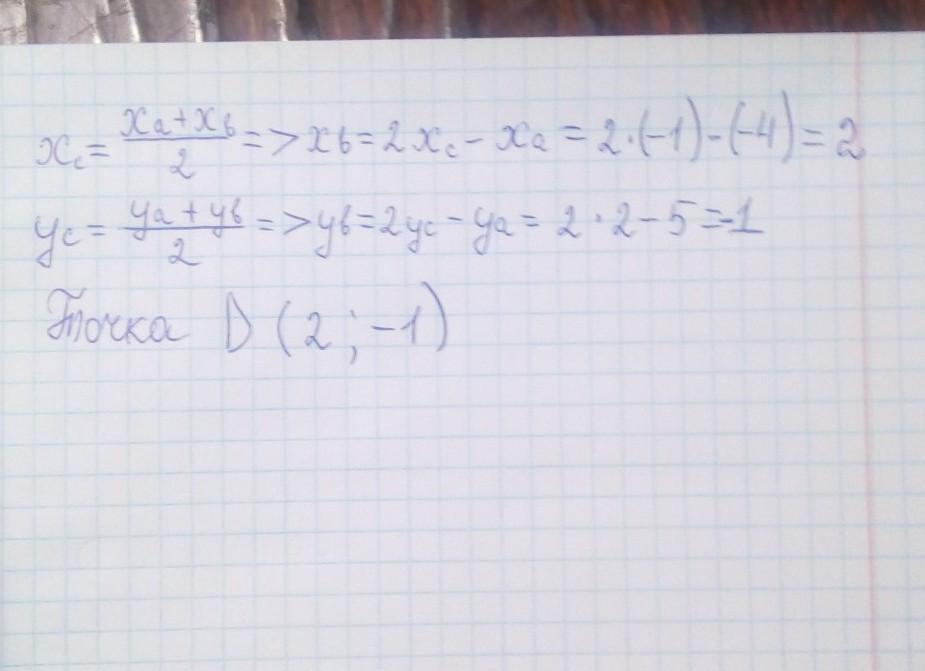 xc = (xa + xb)/2 => xb = 2xc - xa = 2·(-1) - (-4) = 2
yc = (ya + yb)/2 => yb = 2yc - ya = 2·2 - 5 = -1
Точка D (2; -1)